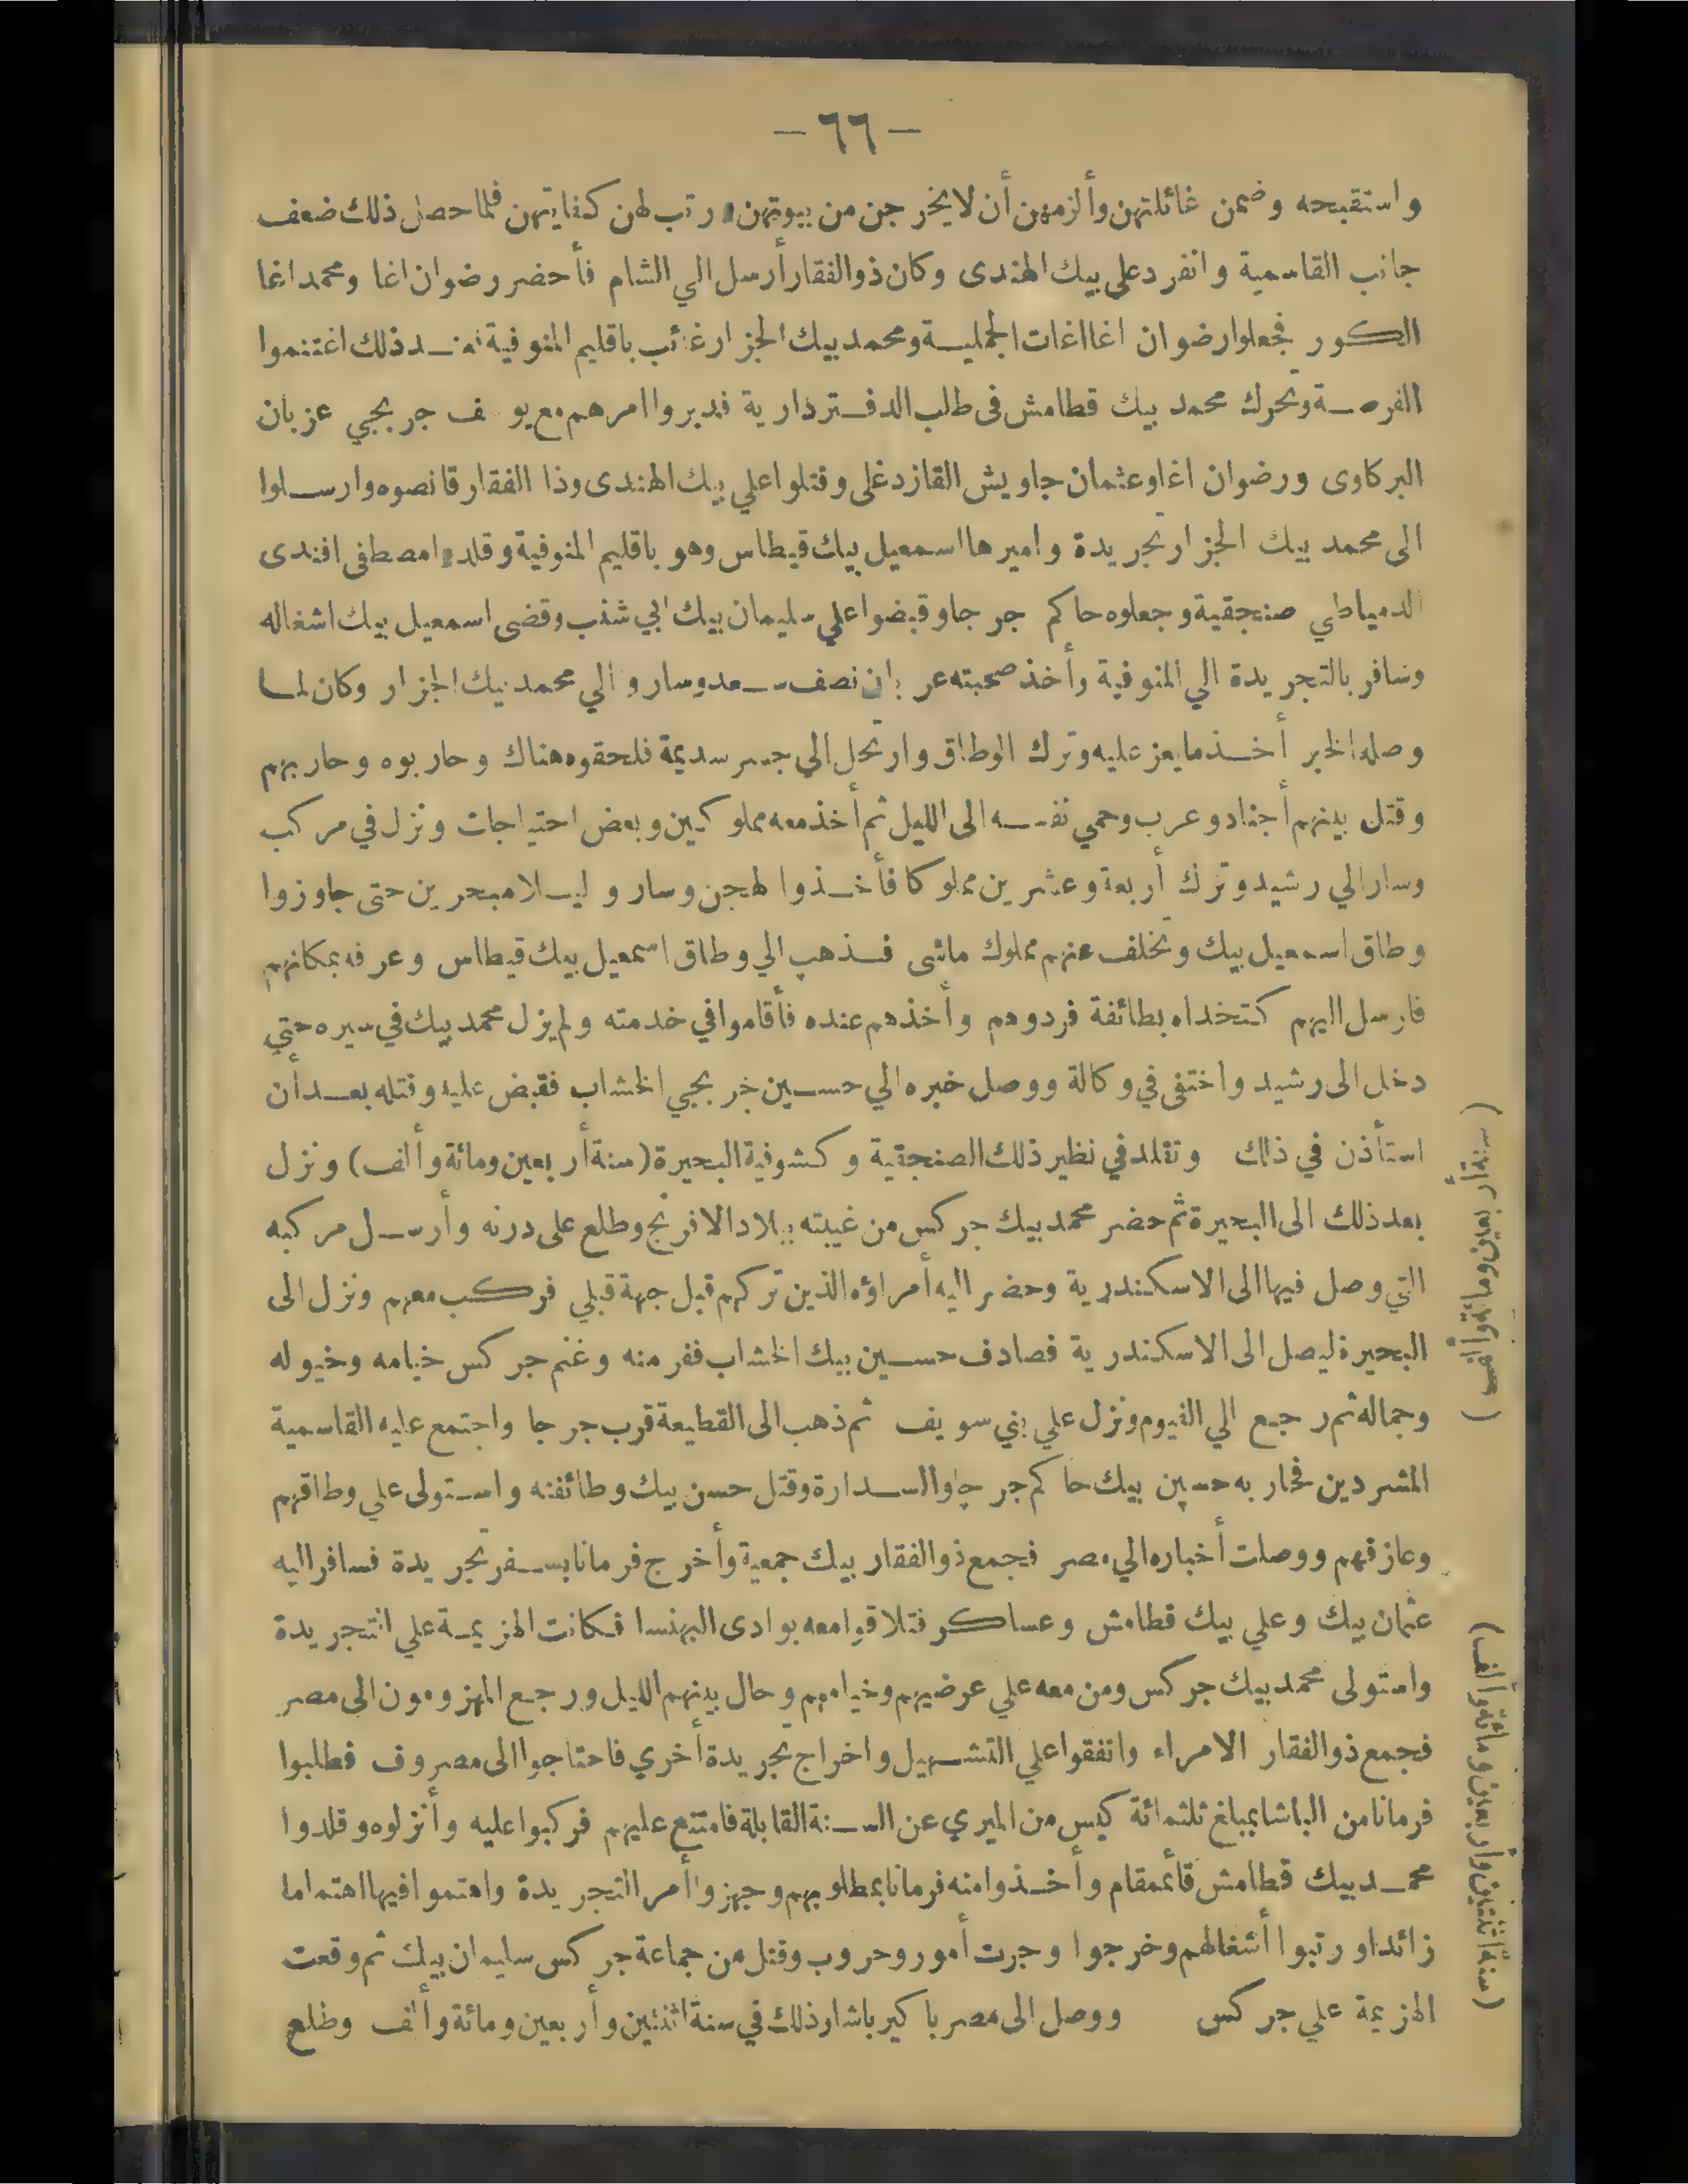 — ٦٦ —
واستقبحه وضمن غائلتهن وألزمهن أن لا يخرجن من بيوتهن ورتب لهن كفايتهن فلما حصل ذلك ضعف
جانب القاسمية وانفرد علي بيك الهندى وكان ذو الفقار أرسل الي الشام فأحضر رضوان اغا ومحمد اغا
الكور فجعلوا رضوان اغا اغات الجمليـة ومحمد بيك الجزار غائب باقليم المنوفية فعنـد ذلك اغتنموا
الفرصـة وتحرك محمد بيك قطامش فى طلب الدفـتردارية فدبروا امرهم مع يوسف جربجي عزبان
البركاوى ورضوان اغا وعثمان جاويش القازدغلى وقتلوا علي بيك الهندى وذا الفقار قانصوه وارسـلوا
الى محمد بيك الجزار تجريدة واميرها اسمعيل بيك قيطاس وهو باقليم المنوفية وقلدوا مصطفى افندى
الدمياطي صنجقية وجعلوه حاكم جرجا وقبضوا علي سليمان بيك ابي شنب وقضى اسمعيل بيك اشغاله
وسافر بالتجريدة الي المنوفية وأخذ صحبته عربان نصف سـعد وساروا الي محمد بيك الجزار وكان لمـا
وصله الخبر أخـذ ما يعز عليه وترك الوطاق وارتحل الي جسر سديمة فلحقوه هناك وحاربوه وحاربهم
وقتل بينهم أجناد وعرب وحمي نفسـه الى الليل ثم أخذ معه مملوكين وبعض احتياجات ونزل في مركب
وسار الي رشيد وترك أربعة وعشرين مملوكا فأخـذوا لهجن وساروا ليـلا مبحرين حتى جاوزوا
وطاق اسمعيل بيك وتخلف عنهم مملوك ماشى فـذهب الي وطاق اسمعيل بيك قيطاس وعرفه بمكانهم
فارسل اليهم كتخداه بطائفة فردوهم وأخذهم عنده فأقاموا في خدمته ولم يزل محمد بيك في سيره حتي
دخل الى رشيد واختفى في وكالة ووصل خبره الي حسـين جربجي الخشاب فقبض عليه وقتله بعـد أن
استأذن في ذلك وتقلد في نظير ذلك الصنجقية وكشوفية البحيرة (سنة أربعين ومائة وألف) ونزل
بعد ذلك الى البحيرة ثم حضر محمد بيك جركس من غيبته ببلاد الافرنج وطلع على درنه وأرسـل مركبه
التي وصل فيها الى الاسكندرية وحضر اليه أمراؤه الذين تركهم قبل جهة قبلي فركـب معهم ونزل الى
البحيرة ليصل الى الاسكندرية فصادف حسـين بيك الخشاب ففر منه وغنم جركس خيامه وخيوله
وجماله ثم رجع الي الفيوم ونزل علي بني سويف ثم ذهب الى القطيعة قرب جرجا واجتمع عليه القاسمية
المشردين فحاربه حسين بيك حاكم جرجا والسـدارة وقتل حسن بيك وطائفته واسـتولى علي وطاقهم
وعازقهم ووصلت أخباره الي مصر فجمع ذو الفقار بيك جمعية وأخرج فرمانا بسـفر تجريدة فسافر اليه
عثمان بيك وعلي بيك قطامش وعساكر فتلاقوا معه بوادى البهنسا فكانت الهزيمـة علي التجريدة
واستولى محمد بيك جركس ومن معه علي عرضيهم وخيامهم وحال بينهم الليل ورجع المهزومون الى مصر
فجمع ذو الفقار الامراء واتفقوا علي التشـهيل واخراج تجريدة أخري فاحتاجوا الى مصروف فطلبوا
فرمانا من الباشا بمبلغ ثلثمائة كيس من الميري عن السـنة القابلة فامتنع عليهم فركبوا عليه وأنزلوه وقلدوا
محمـد بيك قطامش قائممقام وأخـذوا منه فرمانا بمطلوبهم وجهزوا أمر التجريدة واهتموا فيها اهتماما
زائدا ورتبوا أشغالهم وخرجوا وجرت أمور وحروب وقتل من جماعة جركس سليمان بيك ثم وقعت
الهزيمة علي جركس ووصل الى مصر باكير باشا وذلك في سنة اثنتين وأربعين ومائة وألف وطلع
(سنة أربعين ومائة وألف)
(سنة اثنتين وأربعين ومائة وألف)